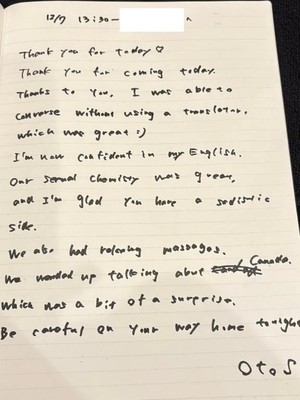 12/7 13:30-
Thank you for today ♡
Thank you for coming today.
Thanks to you, I was able to
converse without using a translator,
which was great :)
I'm now confident in my English.
Our sexual chemistry was great,
and I'm glad you have a sadistic
side.
We also had relaxing massages.
We wended up talking about Canada.
Which was a bit of a surprise.
Be careful on your way home tonight
OtoS